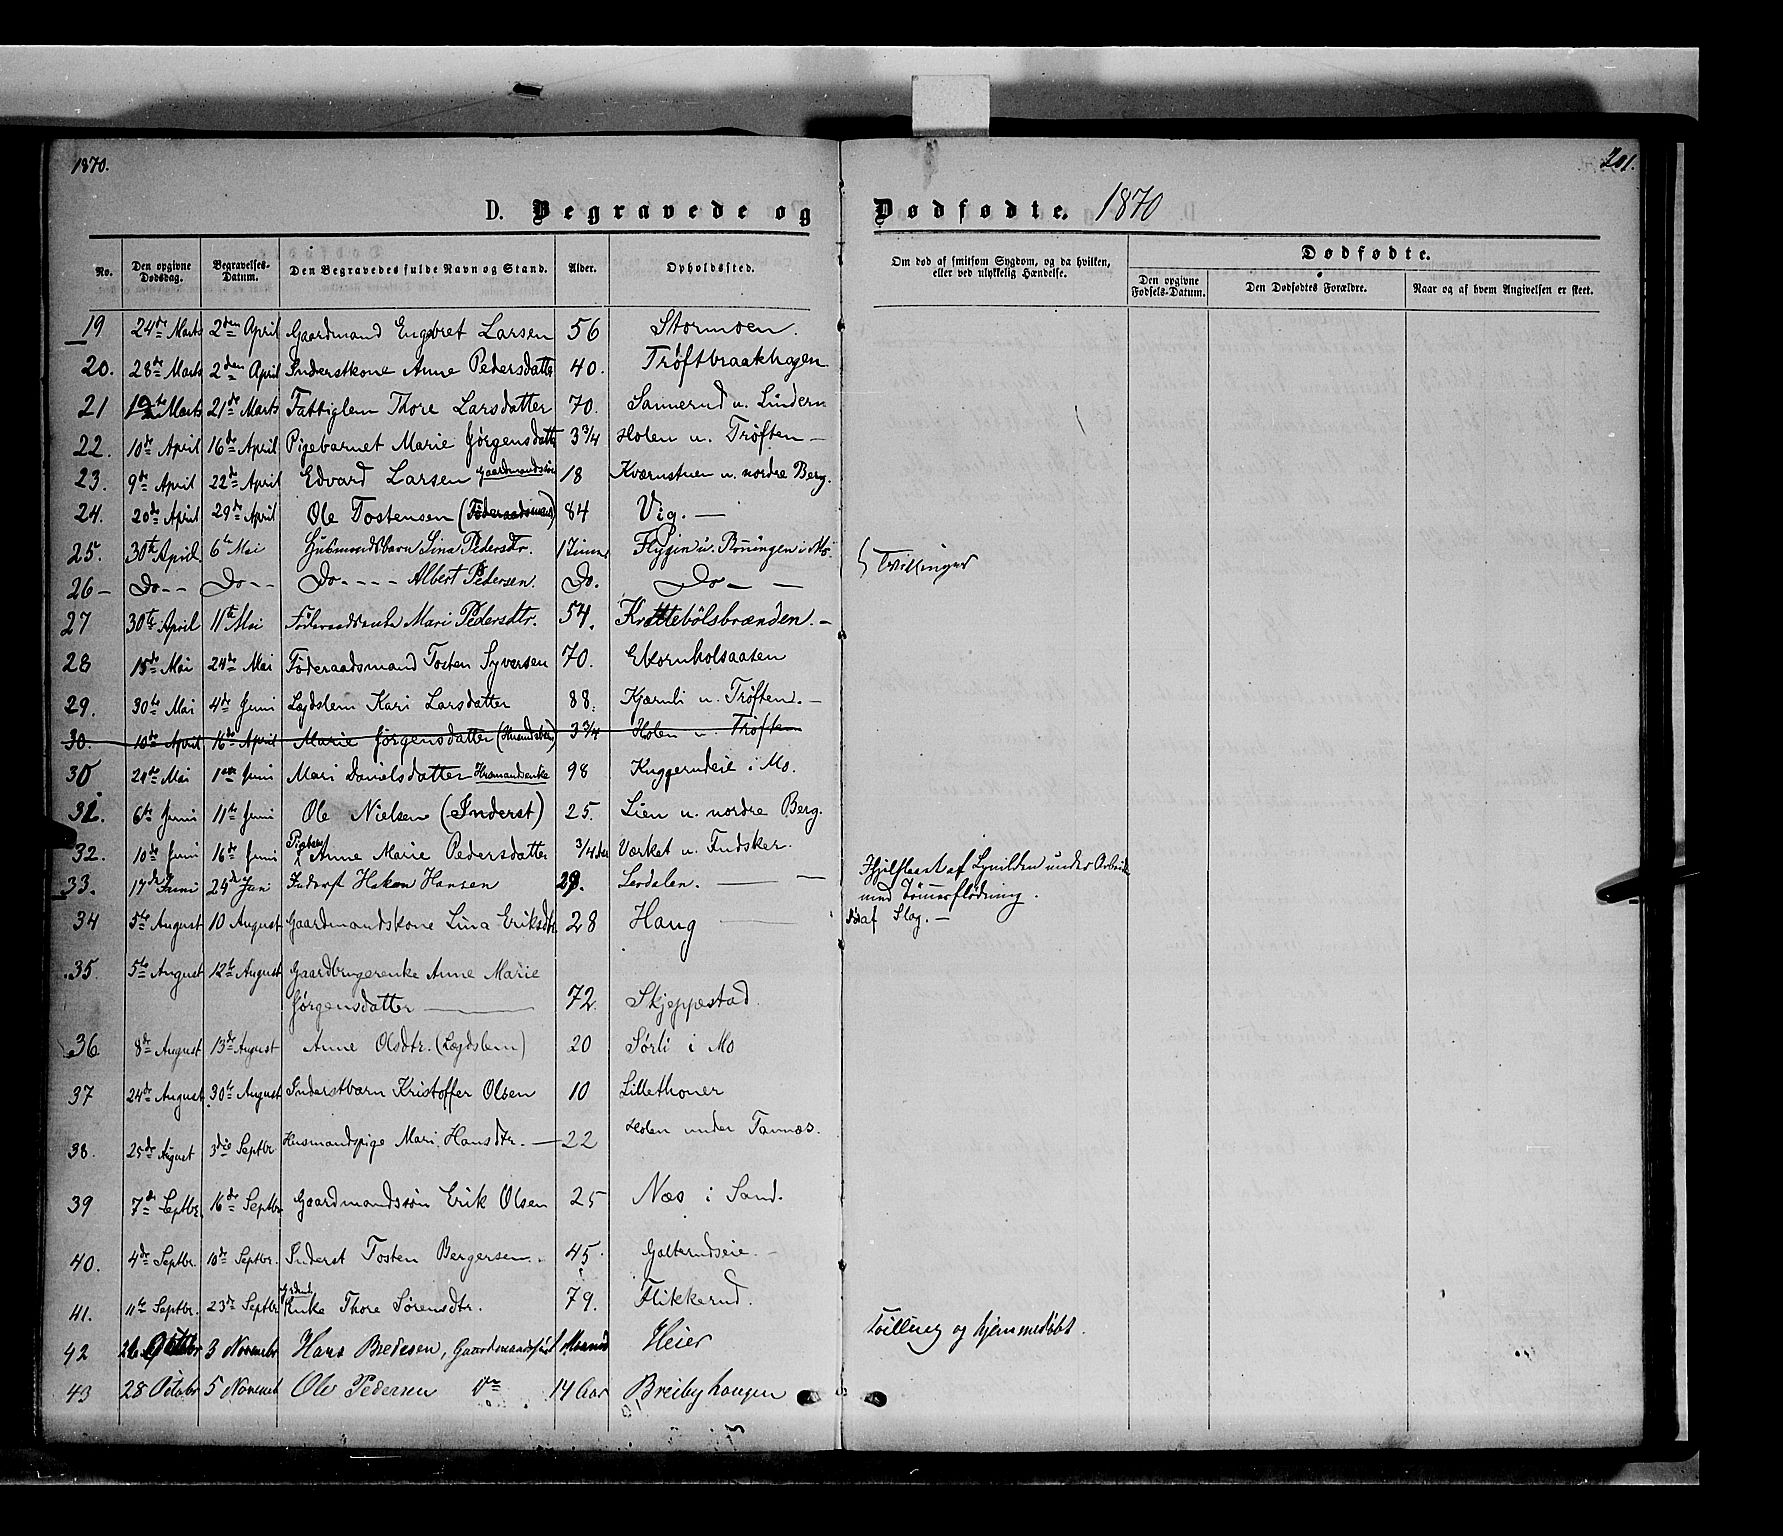 1870.
201.
D. Begravede og Dødfødte. 1870
No. Den opgivne Dødsdag. Begravelses-Datum. Den Begravedes fulde Navn og Stand. Alder. Opholdssted. Om død af smitsom Sygdom, og da hvilken, eller ved ulykkelig Hændelse. Dødfødte. Den opgivne Fødsels-Datum. Den Dødfødtes Forældre. Naar og af hvem Angivelsen er skeet.
19 24de Marts 2den April Gaardmand Engebret Larsen 56 Stormoen.
20. 28de Marts 2den April Inderstkone Anne Pedersdatter 40. Trøftbraakhagen
21 Marts 21de Marts Fattiglem Thore Larsdatter 70. Sannerud u. Lindern
22. 10de April 16de April Pigebarnet Marie Jørgensdattr 3 3/4 Holen u. Trøften —
23. 9de April 22de April Edvard Larsen Gaardmandssøn 18 Kværnstuen u. nordre Berg.
24. 20de April 29de April Ole Tostensen (Føderaadsmand) 84 Vig. —
25. 30te April 6te Mai Husmandsbarn Lina Pedersdtr. Flygin u. Rønningen i Mo. Tvillinger
26 — Do - - Do - - Do - - - - Albert Pedersen. Do. Do — —
27 30te April 11te Mai Mari Pedersdtr. 54. Krættebølsbrænden. —
28 15de Mai 24de Mai Føderaadsmand Tosten Syversen 70. Ekornholsaasen
29. 30te Mai 4de Juni Lægdslem Kari Larsdatter 88. Kjærnli u. Trøften. —
30. 10de April 16de April Marie Jørgensdatter 3 3/4 Holen u Trøften
30 Mai Juni Mari Danielsdatter Husmandsenke 98 Kuggerudeie i Mo.
31. 6te Juni 11te Juni Ole Nielsen (Inderst) 25. Lien u. nordre Berg.
32. 10de Juni 16de Juni Anne Marie Pedersdatter 3/4 Værket u. Fudsker.
33. 17de Juni Inderst Hakon Hansen 29. Lerdalen. — — Ihjelslaaet af Lynilden under Arbeide
med Tømmerflødning.
34 5te August 10 August Gaardmandskone Lina Eriksdtr. 28 Haug — af Slag. —
35. 5te August 12te August Gaardbrugerenke Anne Marie
Jørgensdatter — 72. Skjeppestad.
36 8de August 13de August Anne Olsdtr. (Lægdslem) 20 Sørli i Mo
37 24de August 30te August Inderstbarn Kristoffer Olsen 10 Lillethoner
38. 25de August 3die Septbr Husmandspige Mari Hansdtr. — 22 Holen under Tannæs.
39 7de Septbr. 16de Septbr Gaardmandssøn Erik Olsen 25 Næs i Sand.
40. 4de Septbr. 10de Septbr. Inderst Tosten Bergersen. 45. Galterudseie. —
41. 11te Septbr. 23de Septbr Enke Thore Sørensdtr. 79. Flikkerud.
42 26 Octobr 3 Novembr Hans Bredesen, Gaardmandssøn 1 Maaned Heier Tvilling og hjemmedøbt.
43 28 Octobr 5 Novembr Ole Pedersen 14 Aar Breibyhaugen